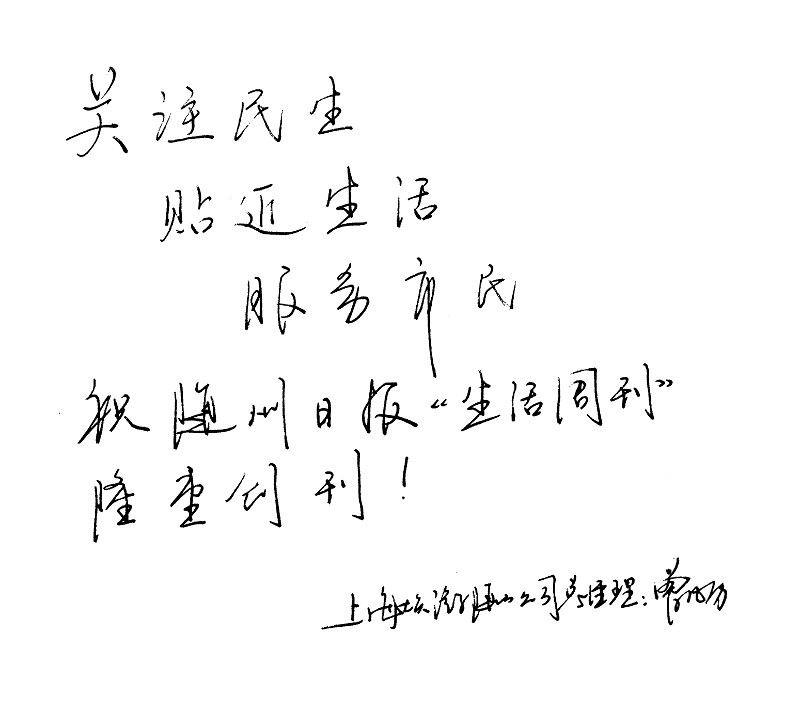 关注民生
贴近生活
服务市民
祝随州日报“生活周刊”
隆重创刊！
上海 公司总经理：曾